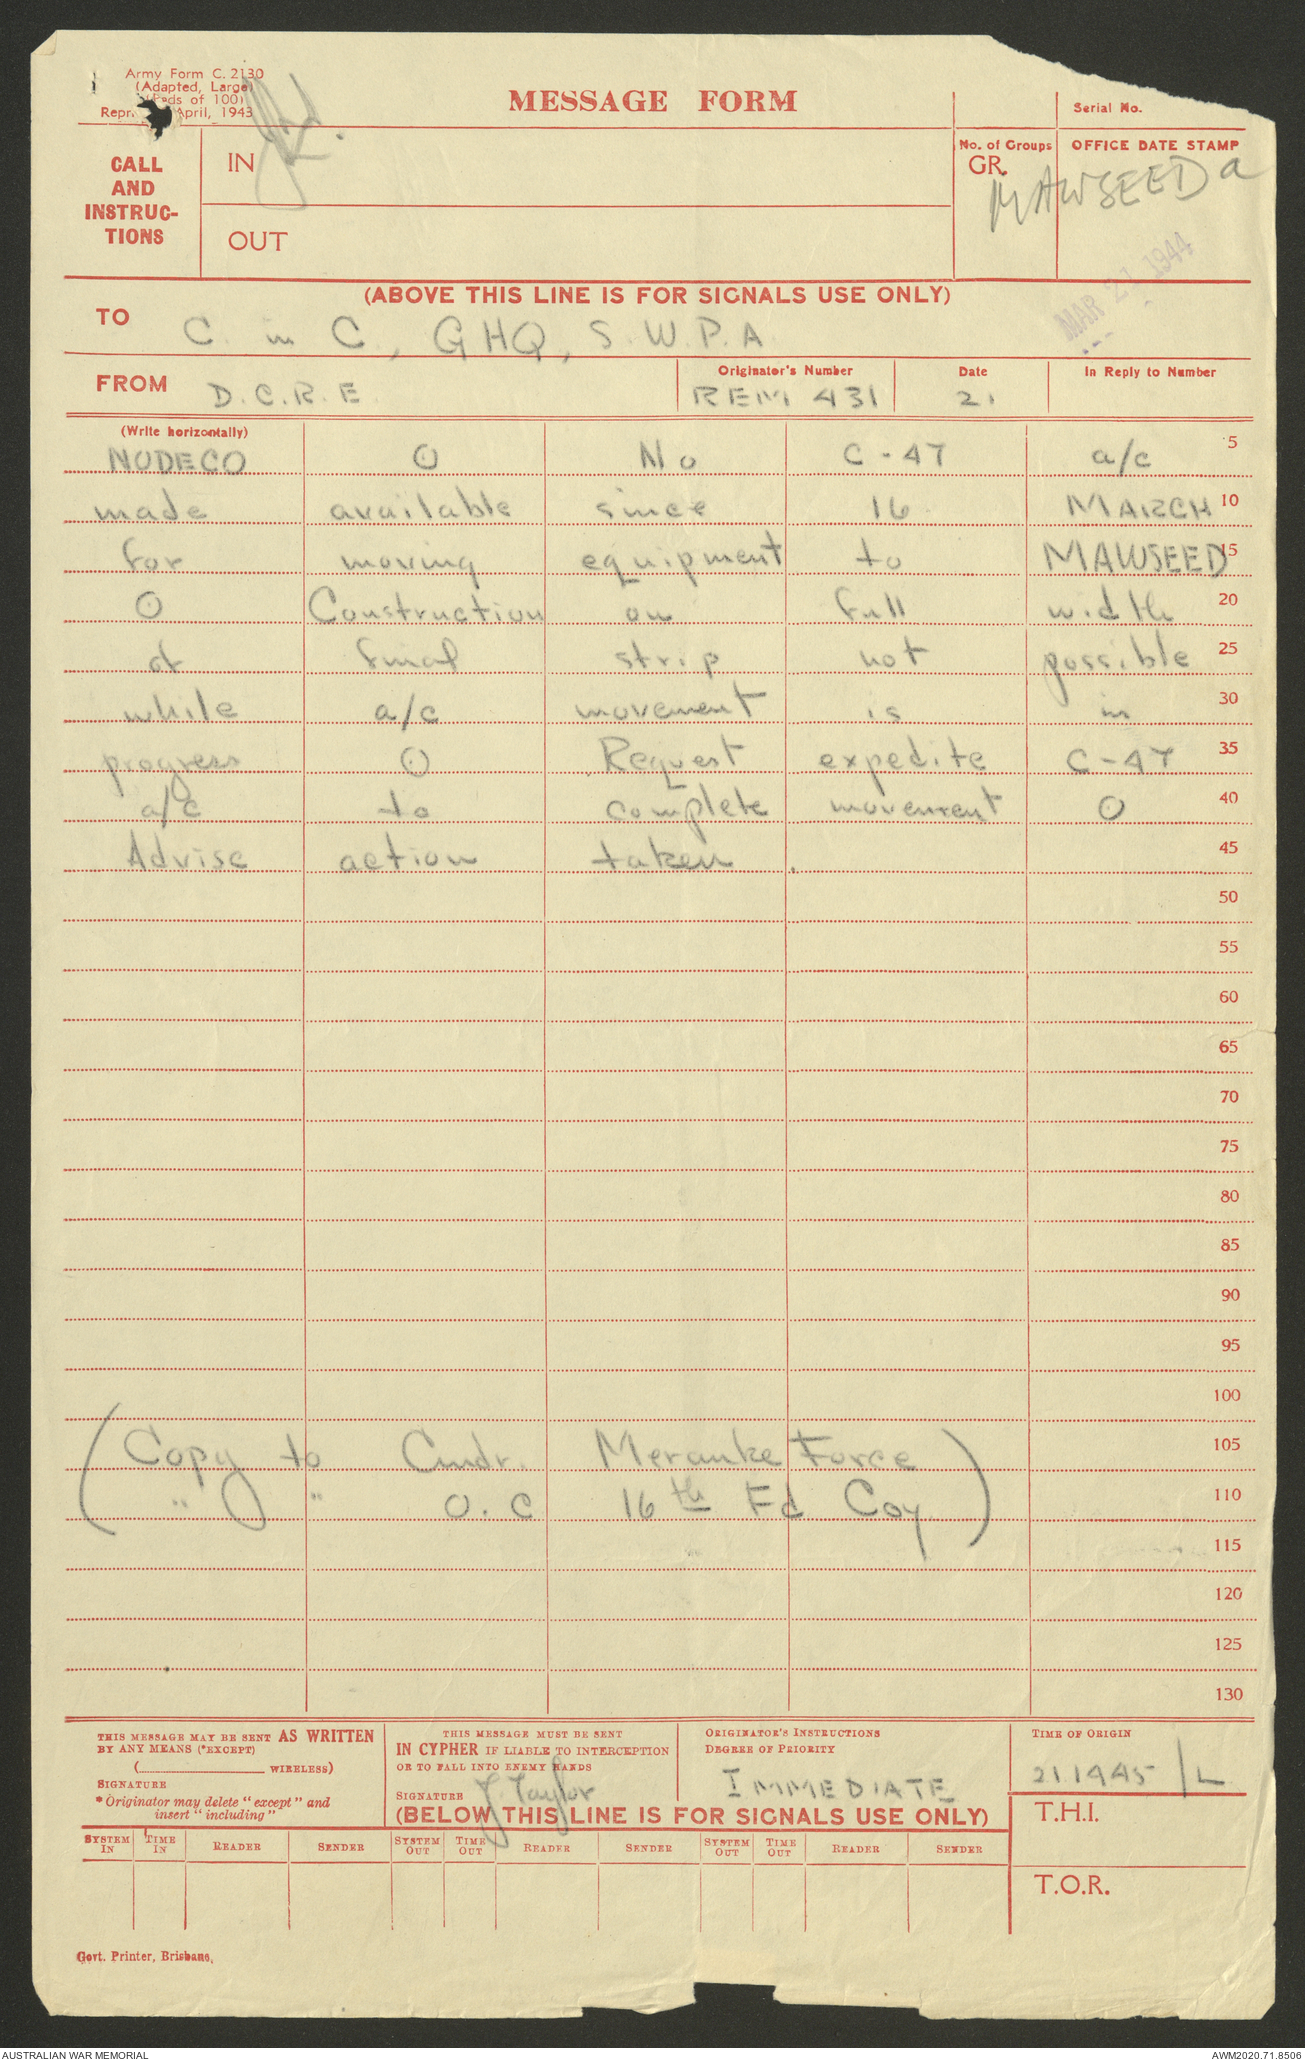 Army Form C. 2130
(Adapted, Large)
(Pads of 100)
April, 1943
MESSAGE FORM
Serial No.
CALL AND INSTRUC-TIONS
IN
OUT
No. of Groups
GR.
OFFICE DATE STAMP
MAWSEED a
MAR 21 1944
(ABOVE THIS LINE IS FOR SIGNALS USE ONLY)
TO C. in C., GHQ, S.W.P.A.
FROM D.C.R.E.
Originator's Number REM 431
Date 21
In Reply to Number
(Write horizontally)
NUDECO O No C-47 a/c 5
made available since 16 MARCH 10
for moving equipment to MAWSEED 15
O Construction on full width 20
of final strip not possible 25
while a/c movement is in 30
progress O Request expedite C-47 35
a/c to complete movement O 40
Advise action taken . 45
50
55
60
65
70
75
80
85
90
95
100
(Copy to Cmdr. Merauke Force 105
" " O.C 16th Fd Coy) 110
115
120
125
130
THIS MESSAGE MAY BE SENT AS WRITTEN
BY ANY MEANS (*EXCEPT)
( WIRELESS)
SIGNATURE
* Originator may delete "except" and
insert "including"
THIS MESSAGE MUST BE SENT
IN CYPHER IF LIABLE TO INTERCEPTION
OR TO FALL INTO ENEMY HANDS
SIGNATURE J. Taylor
ORIGINATOR'S INSTRUCTIONS
DEGREE OF PRIORITY
IMMEDIATE
TIME OF ORIGIN
211445/L
(BELOW THIS LINE IS FOR SIGNALS USE ONLY)
T.H.I.
SYSTEM IN TIME IN READER SENDER SYSTEM OUT TIME OUT READER SENDER SYSTEM OUT TIME OUT READER SENDER
T.O.R.
Govt. Printer, Brisbane,
AUSTRALIAN WAR MEMORIAL
AWM2020.71.8506